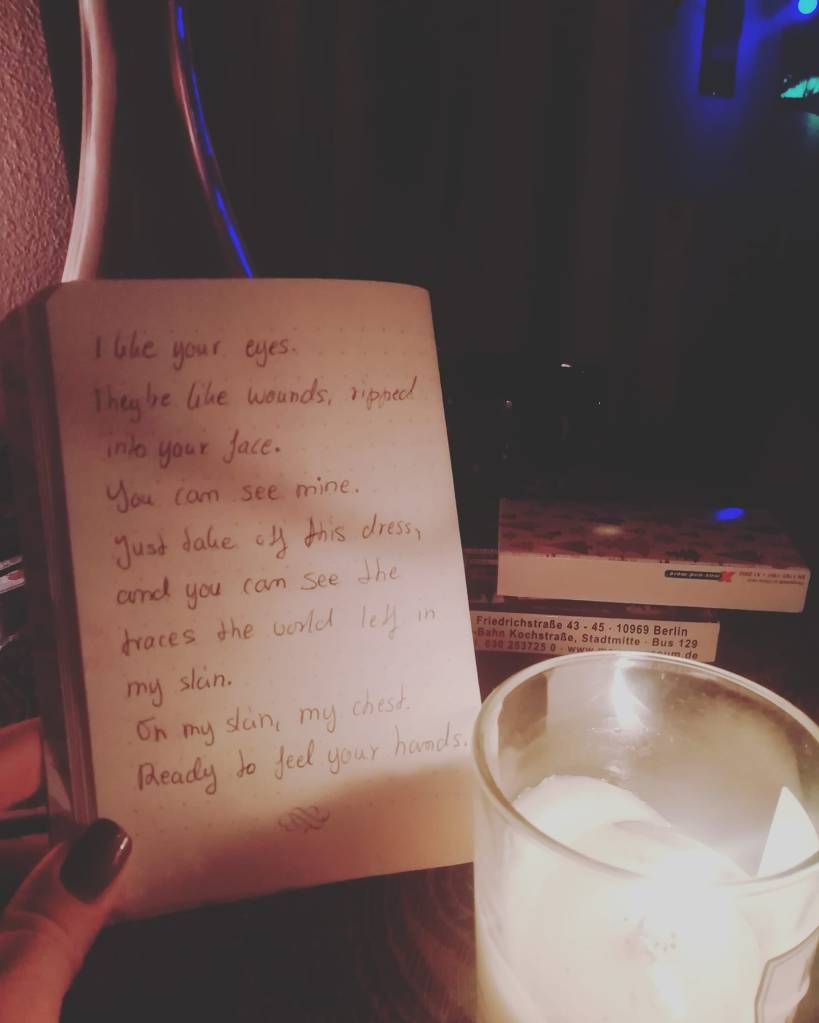 I like your eyes.
They're like wounds, ripped
into your face.
You can see mine.
Just take off this dress,
and you can see the
traces the world left in
my skin.
On my skin, my chest.
Ready to feel your hands.
Friedrichstraße 43 - 45 · 10969 Berlin
-Bahn Kochstraße, Stadtmitte · Bus 129
030 253725 0 · www.m
um.de